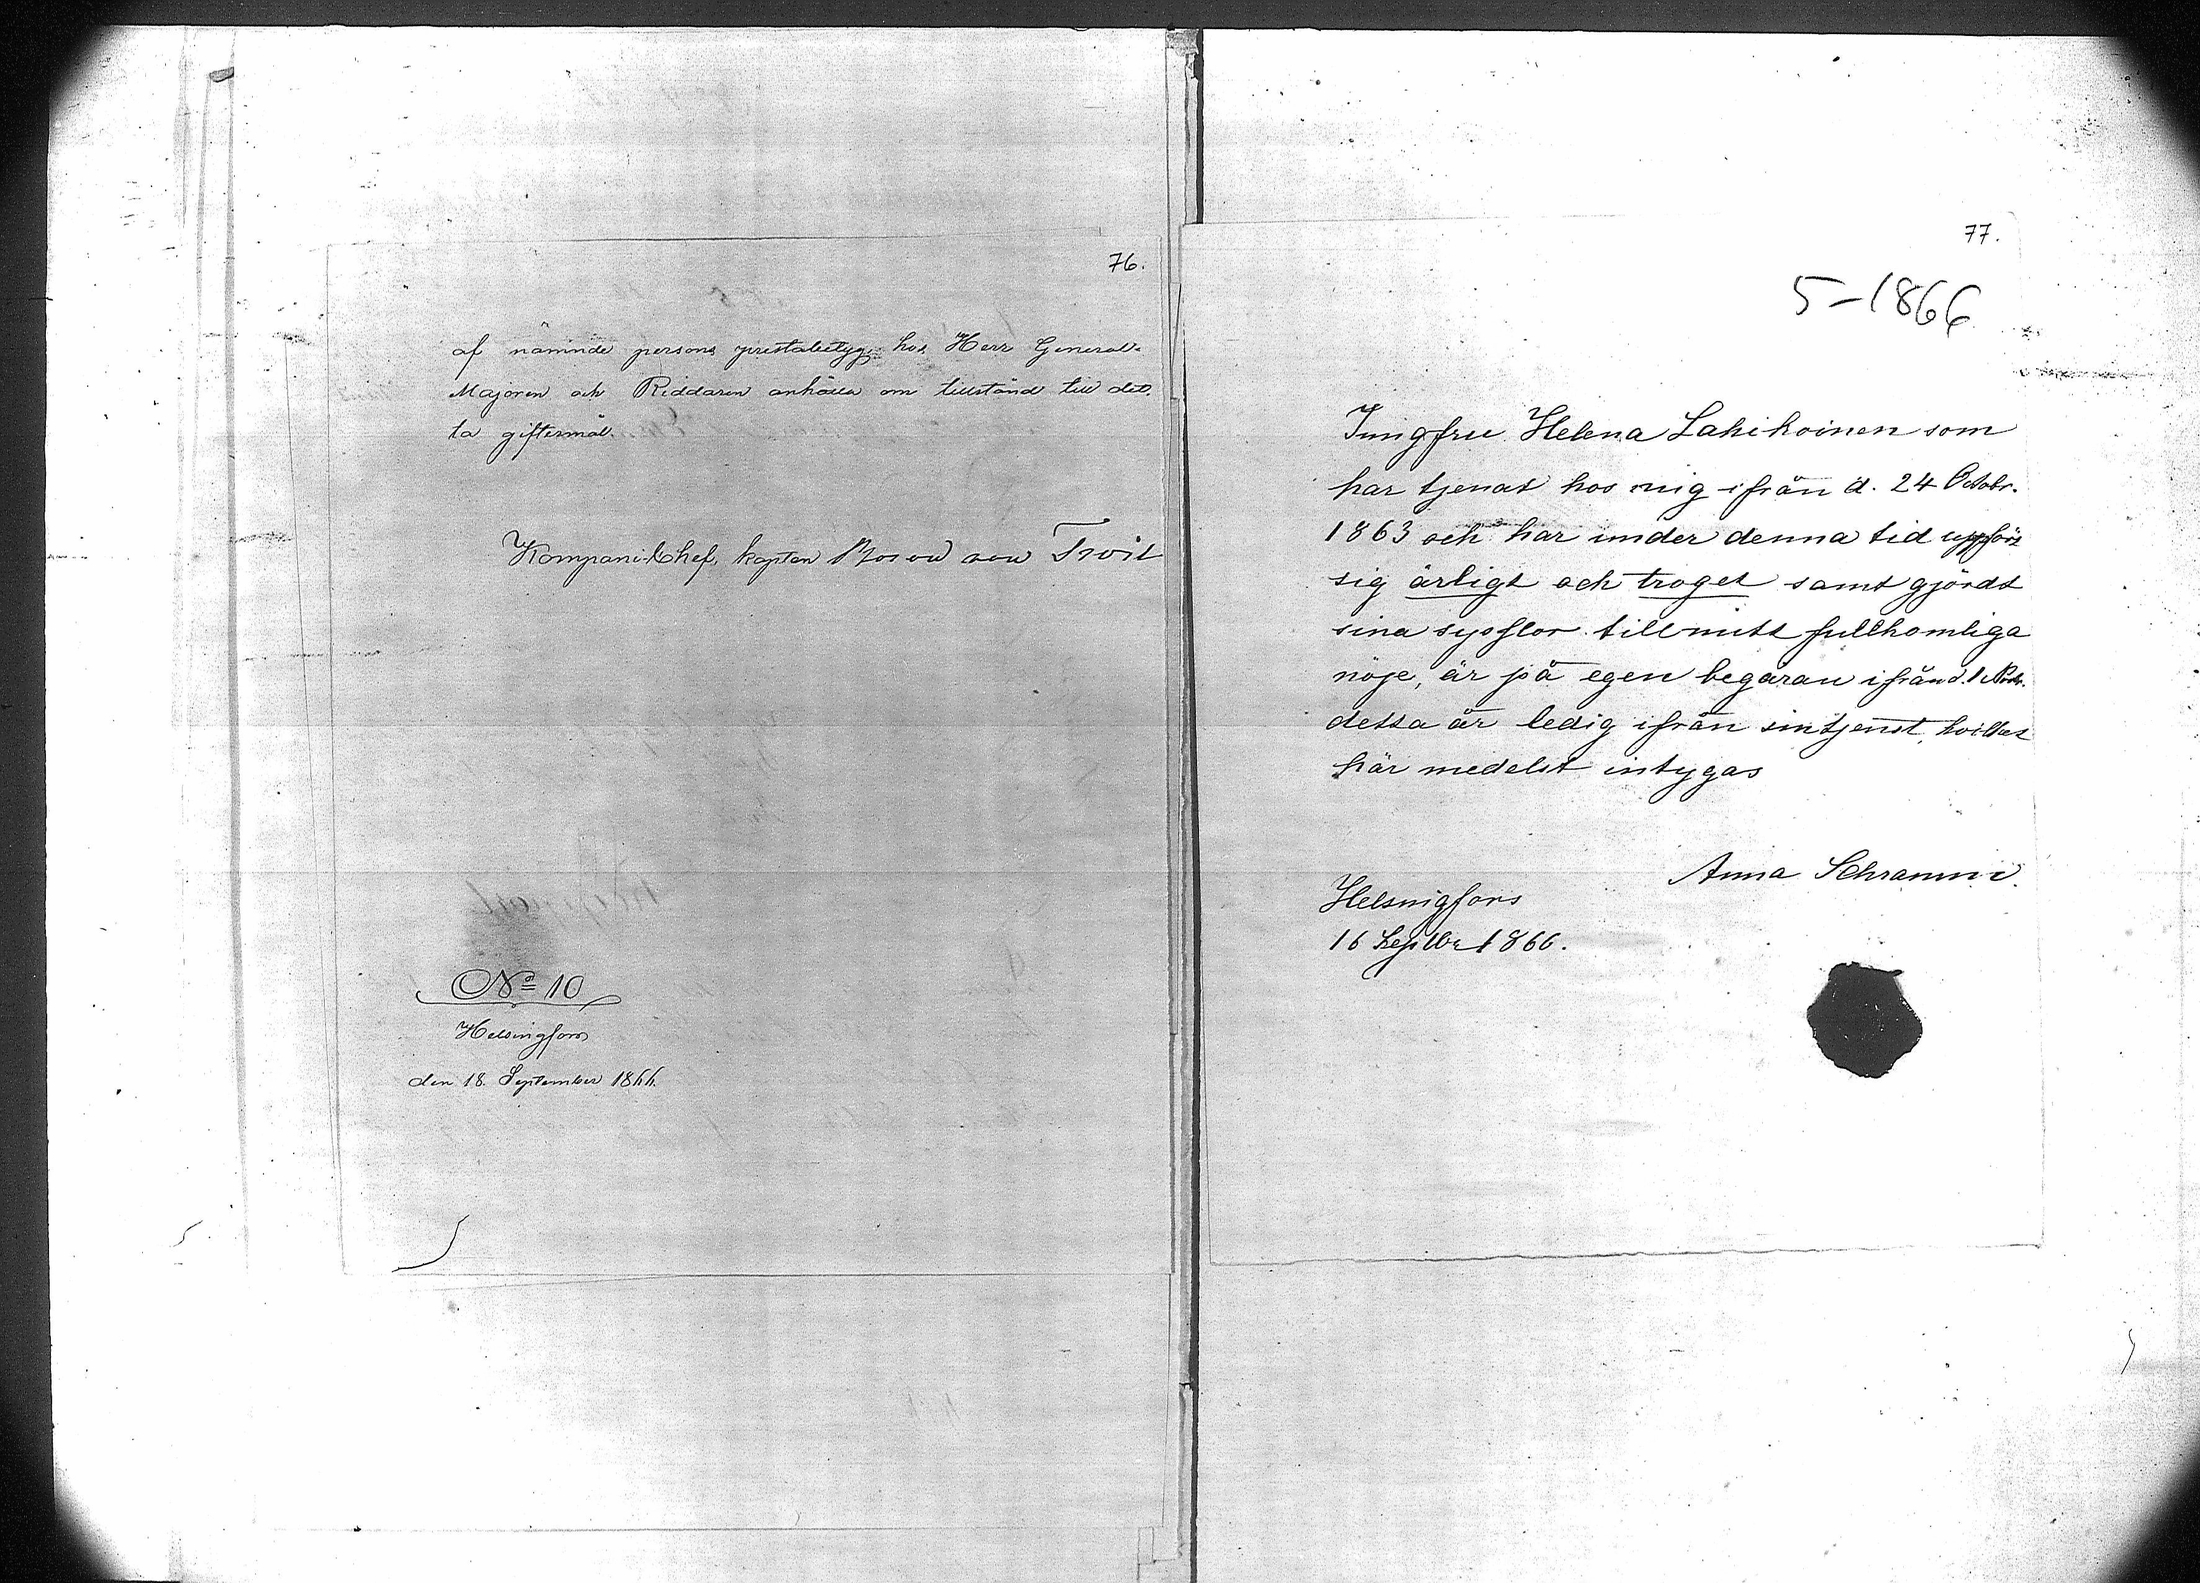 76.
af nämnde persons prestabetyg, hos Herr General-
Majoren och Riddaren anhålla om tillstånd till det-
ta giftermål.
Kompani-Chef, kapten
No 10
Helsingfors
den 18. September 1866.
77.
5-1866
Jungfru Helena Lahikoinen som
har tjenat hos mig ifrån d. 24 Octobr.
1863 och har under denna tid uppfört
sig ärligt och troget samt gjördt
sina sysslor till mitt fullkomliga
nöje, är på egen begäran ifrån d. 1 Nov.
detta år ledig ifrån sin tjenst, hvilket
här medelst intygas
Anna Schramm
Helsingfors
16 Septbr 1866.